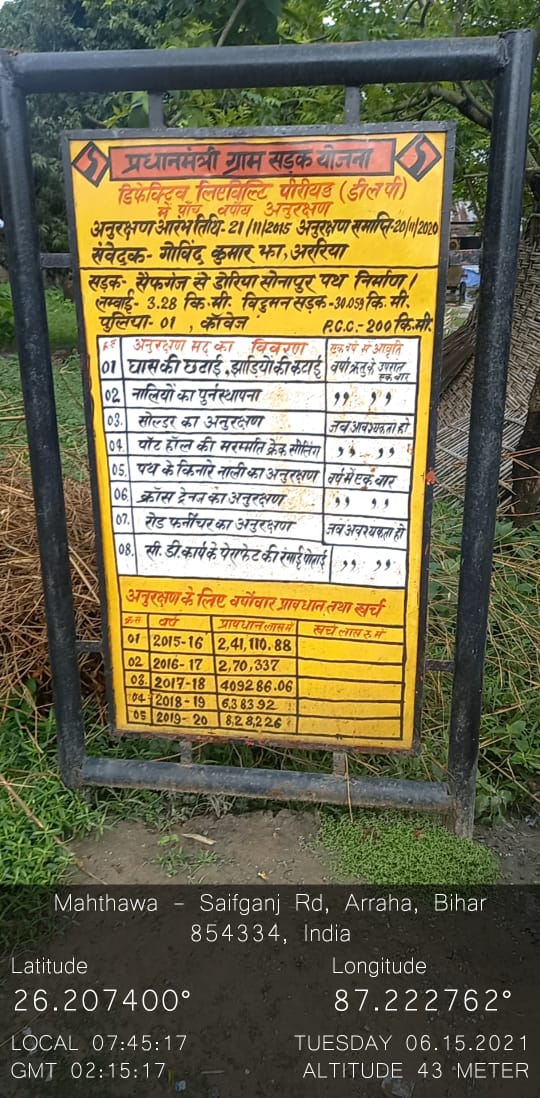 प्रधानमंत्री ग्राम सड़क योजना
डिफेक्टिव लिएविल्टि पीरीयड (डी.ल.पी)
में पाँच वर्षीय अनुरक्षण
अनुरक्षण आरंभ तिथि- 21/11/2015 अनुरक्षण समाप्ति-20/11/2020
संवेदक- गोविंद कुमार झा, अररिया
सड़क- सैफगंज से डोरिया सोनापुर पथ निर्माण/
लम्बाई- 3.28 कि.मी. विटुमन सड़क-30.059 कि.मी.
पुलिया- 01 , कॉवेज P.C.C.-200 कि.मी.
क्र.सं अनुरक्षण मद का विवरण एक वर्ष में आवृति
01 घास की छटाई, झाड़ियों की कटाई वर्षा ऋतु के उपरांत एक बार
02 नालियों का पुर्नस्थापना ,, ,,
03. सोल्डर का अनुरक्षण जब आवश्यकता हो
04. पॉट हॉल की मरम्मति क्रेक सीलिंग ,, ,,
05. पथ के किनारे नाली का अनुरक्षण वर्ष में एक बार
06. क्रॉस ड्रेनज का अनुरक्षण ,, ,,
07. रोड फर्नीचर का अनुरक्षण जब आवश्यकता हो
08. सी. डी. कार्य के पेराफेट की रंगाई पोताई ,, ,,
अनुरक्षण के लिए वर्षवार प्रावधान तथा खर्च
क्र.स वर्ष प्रावधान लाख में खर्च लाख रु. में
01 2015-16 2,41,110.88
02 2016-17 2,70,337
03. 2017-18 409286.06
04. 2018-19 638392
05 2019-20 8,28,226
Mahthawa - Saifganj Rd, Arraha, Bihar
854334, India
Latitude Longitude
26.207400° 87.222762°
LOCAL 07:45:17 TUESDAY 06.15.2021
GMT 02:15:17 ALTITUDE 43 METER